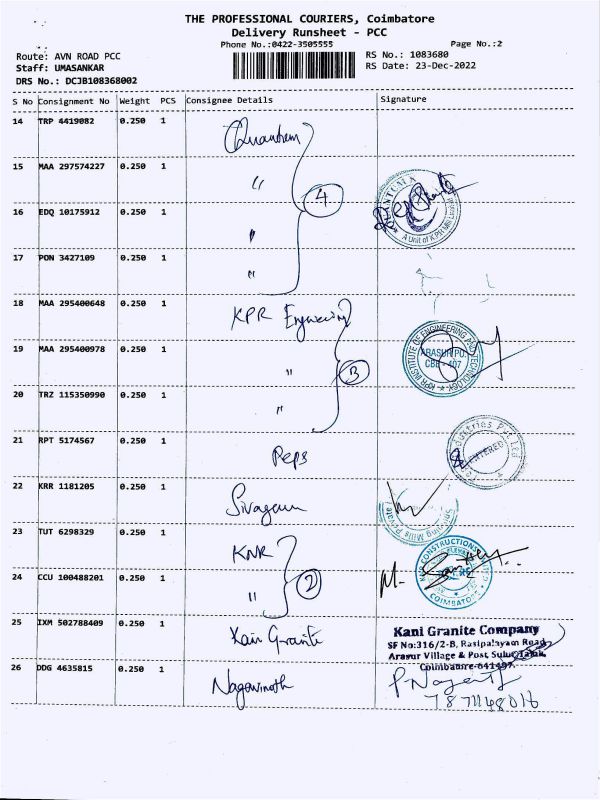 THE PROFESSIONAL COURIERS, Coimbatore
Delivery Runsheet - PCC
Phone No.:0422-3505555 Page No.:2
Route: AVN ROAD PCC RS No.: 1083680
Staff: UMASANKAR RS Date: 23-Dec-2022
DRS No.: DCJB108368002
S No Consignment No Weight PCS Consignee Details Signature
14 TRP 4419082 0.250 1 Quantum
15 MAA 297574227 0.250 1 "
4
16 EDQ 10175912 0.250 1 "
17 PON 3427109 0.250 1 "
18 MAA 295400648 0.250 1 KPR Engineering
19 MAA 295400978 0.250 1 "
3
KPR INSTITUTE OF ENGINEERING AND TECHNOLOGY
ARASUR PO.
CBE - 407
20 TRZ 115350990 0.250 1 "
21 RPT 5174567 0.250 1 Peps
ENTERED
22 KRR 1181205 0.250 1
23 TUT 6298329 0.250 1 KNR
24 CCU 100488201 0.250 1 "
2
CONSTRUCTIONS
COIMBATORE
25 IXM 502788409 0.250 1 Kani Granite
Kani Granite Company
SF No:316/2-B, Rasipalayam Road
Arasur Village & Post, Sulur Taluk,
Coimbatore-641407.
26 DDG 4635815 0.250 1